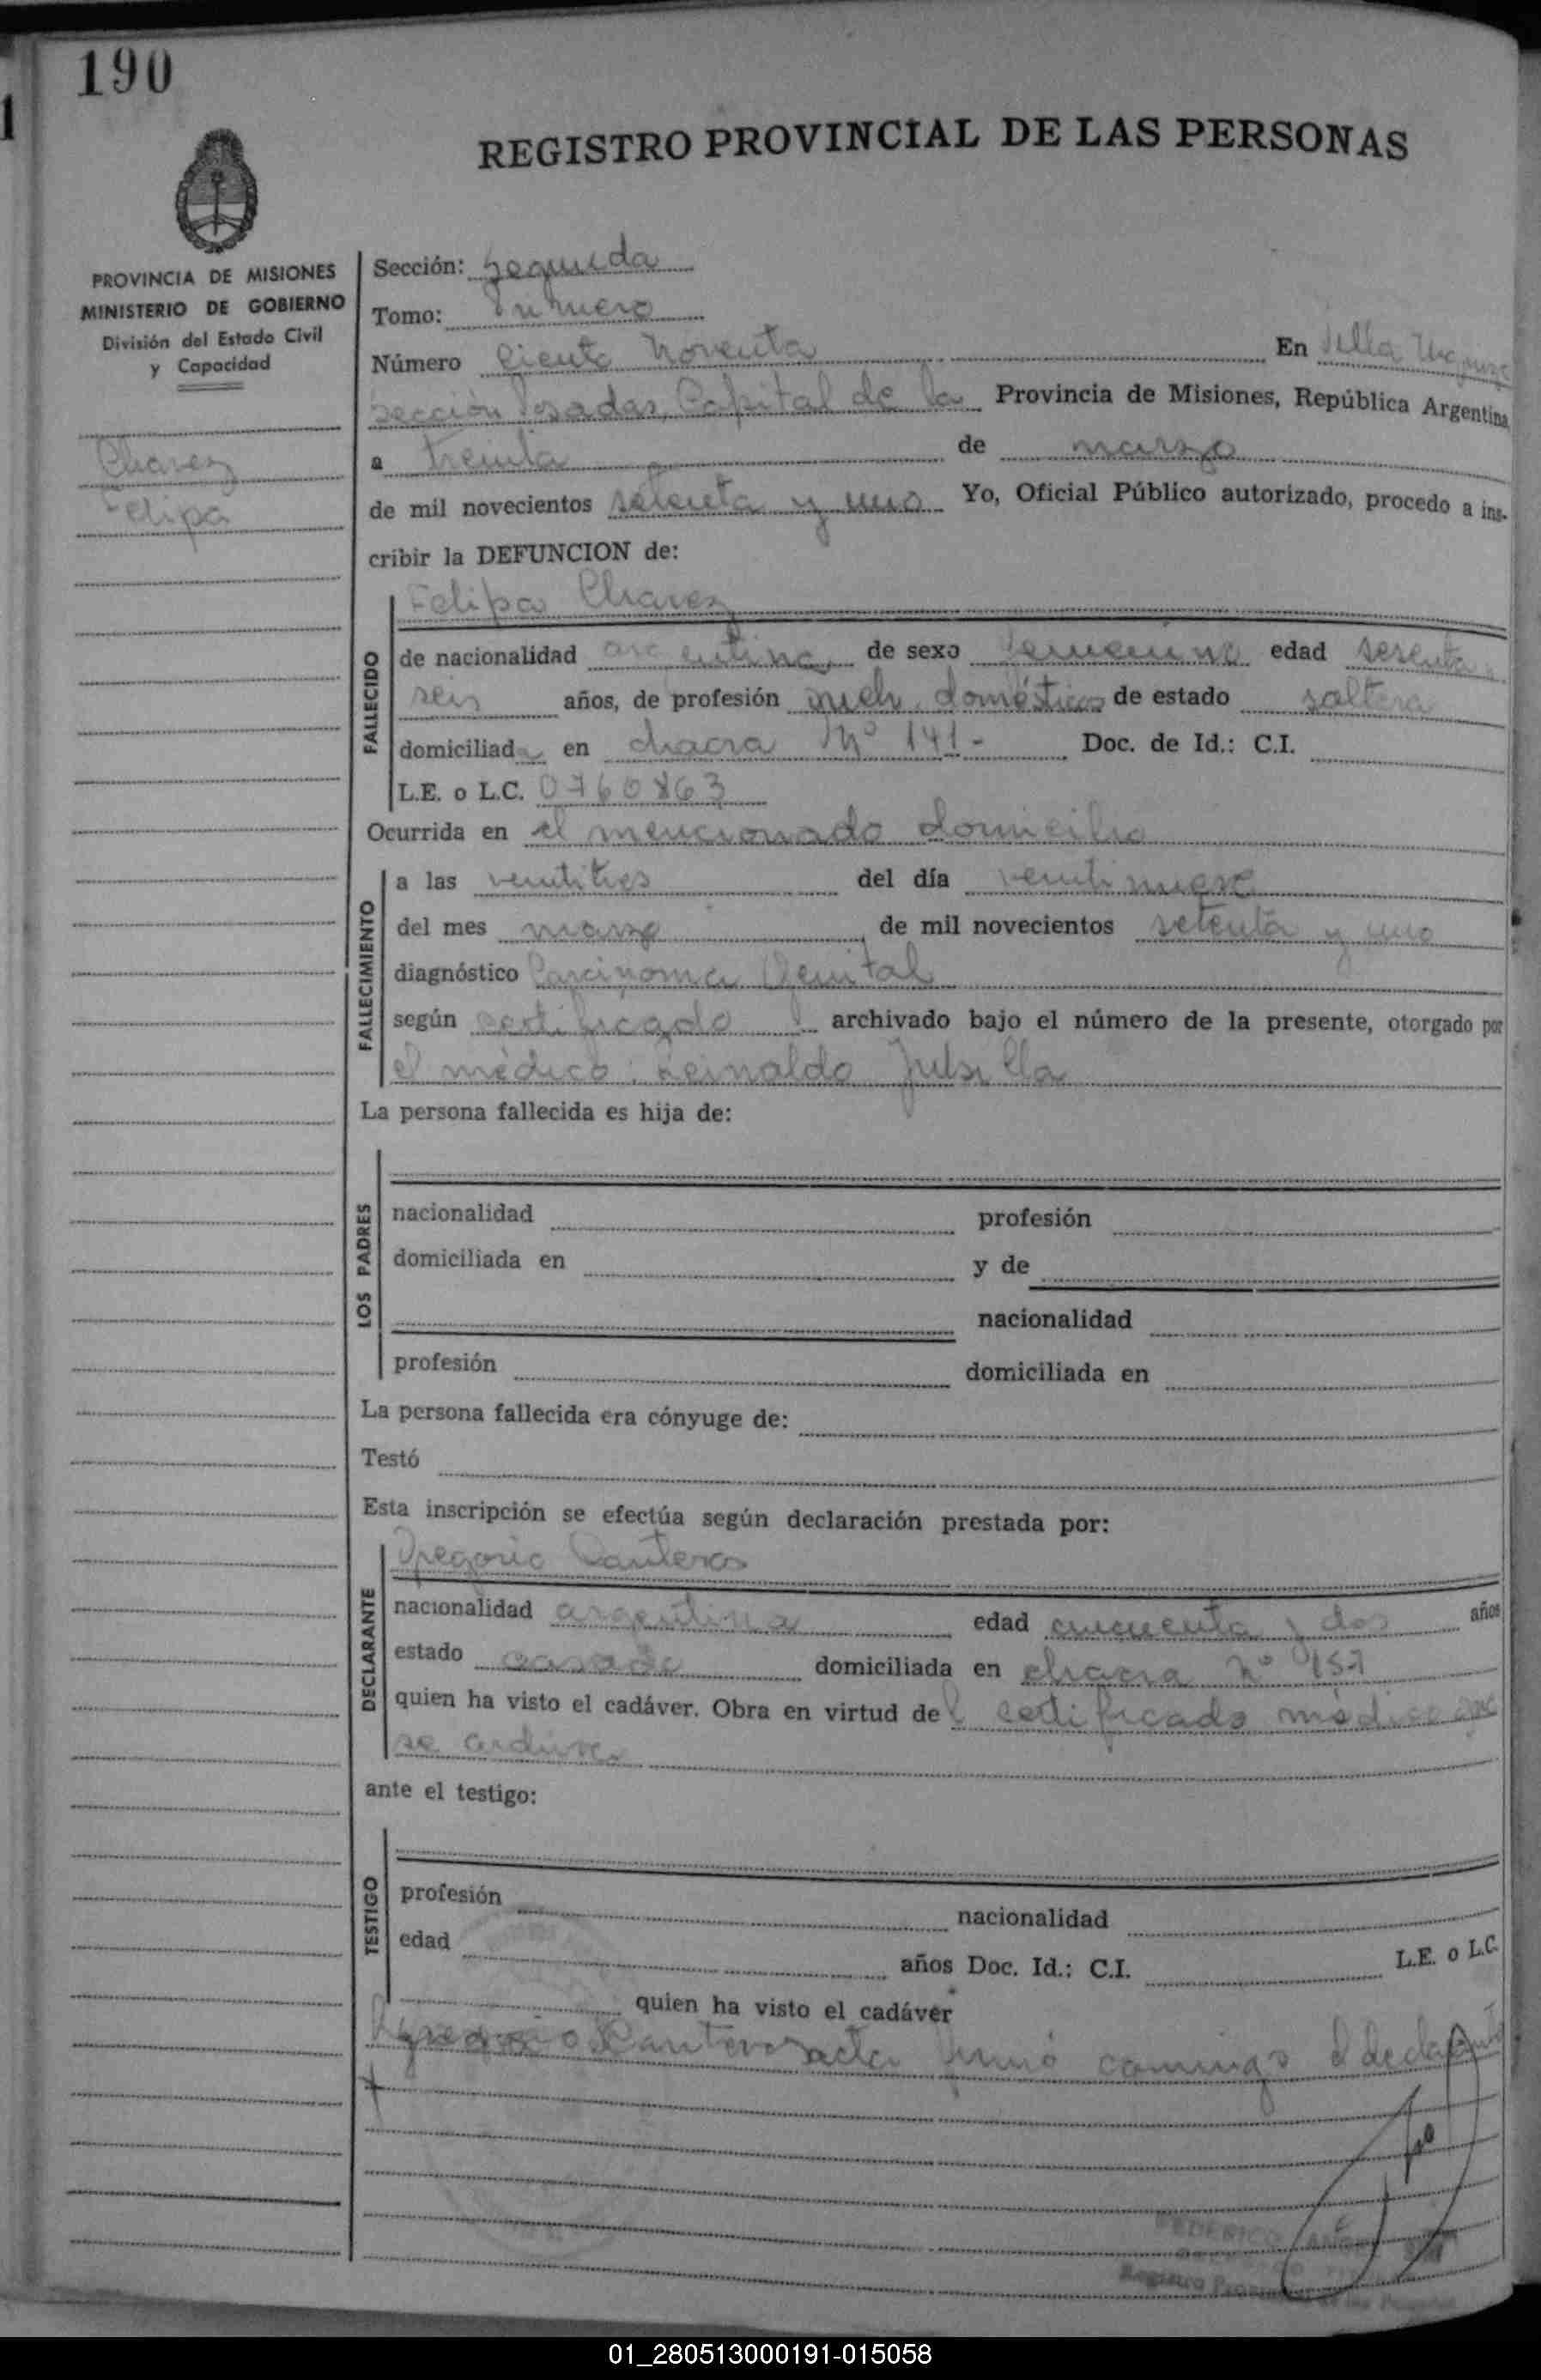 190
REGISTRO PROVINCIAL DE LAS PERSONAS
PROVINCIA DE MISIONES
MINISTERIO DE GOBIERNO
División del Estado Civil
y Capacidad
Chavez
Felipa
Sección: Segunda
Tomo: Primero
Número Ciento Noventa En Villa Urquiza
sección Posadas, Capital de la Provincia de Misiones, República Argentina,
a treinta de marzo
de mil novecientos setenta y uno Yo, Oficial Público autorizado, procedo a ins-
cribir la DEFUNCION de:
FALLECIDO
Felipa Chavez
de nacionalidad argentina de sexo femenino edad sesenta
seis años, de profesión domésticos de estado soltera
domiciliada en chacra Nº 141- Doc. de Id.: C.I.
L.E. o L.C. 0760863
Ocurrida en el mencionado domicilio
FALLECIMIENTO
a las veintitres del día veintinueve
del mes marzo de mil novecientos setenta y uno
diagnóstico Carcinoma Genital
según certificado archivado bajo el número de la presente, otorgado por
el médico: Reinaldo
La persona fallecida es hija de:
LOS PADRES
nacionalidad profesión
domiciliada en y de
nacionalidad
profesión domiciliada en
La persona fallecida era cónyuge de:
Testó
Esta inscripción se efectúa según declaración prestada por:
DECLARANTE
Gregorio Canteros
nacionalidad argentina edad cincuenta y dos años
estado casado domiciliada en chacra Nº 151
quien ha visto el cadáver. Obra en virtud del certificado médico que
se archiva
ante el testigo:
TESTIGO
profesión nacionalidad
edad años Doc. Id.: C.I. L.E. o L.C.
quien ha visto el cadáver
Gregorio Canteros acta firmó conmigo el declarante
FEDERICO
Registro Provincial de las Personas
01_280513000191-015058